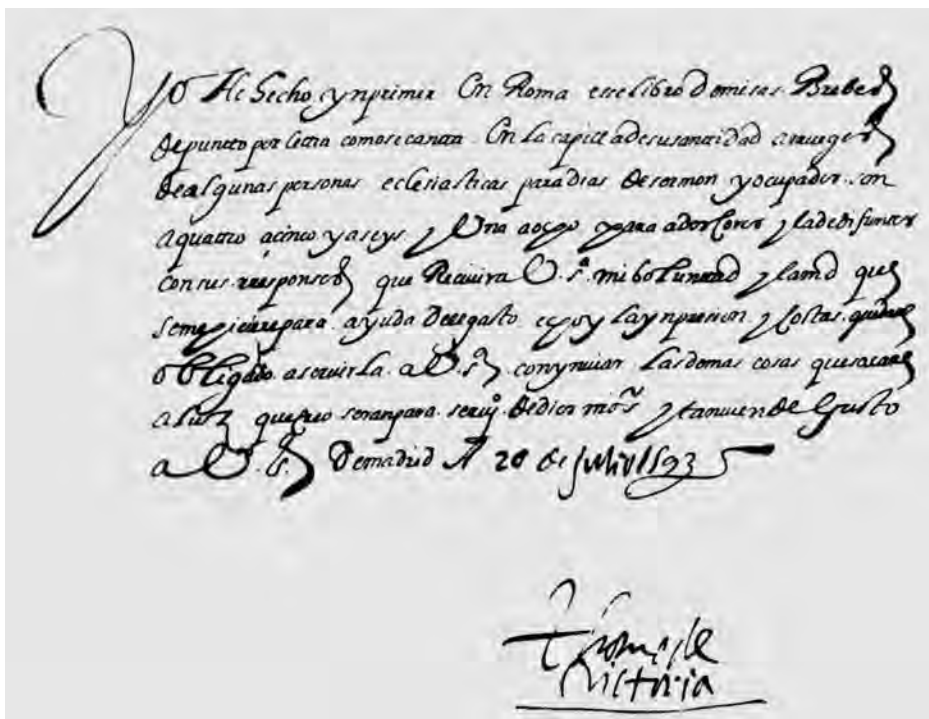 Yo He hecho ynprimir En Roma este libro de misas Brebes
de puncto por letra como se canta En la capilla de su santidad a rruegos
de algunas personas eclesiasticas para dias de sermon y ocupados son
a quatro a cinco y a seys y Una a ocho para dos Coros y la de difuntos
con sus rresponsos que Recivira V. sª. mi boluntad y la md que
se me hiciere para ayuda del gasto estoy la ynpresion y costas quedare
obligado a servirla a V. s. con ynviar las demas cosas que sacare
a luz que seran para servº de dios nro sr y tanvien de Gusto
a V. s. De madrid A 20 de Julio 1593
Thome de
Victoria